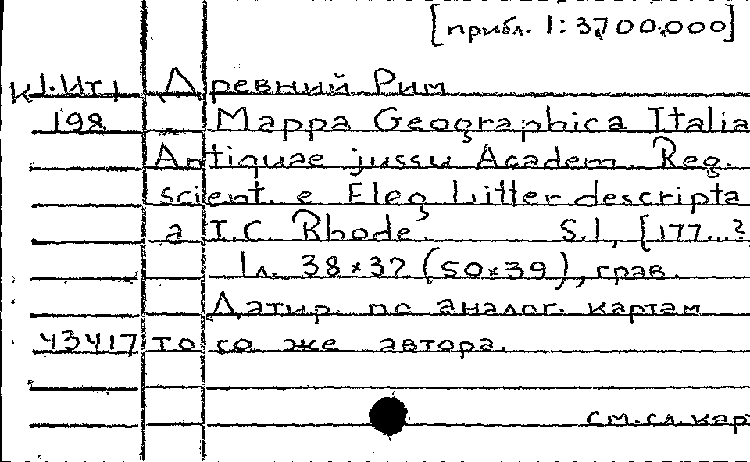 [прибл. 1:3,700.000]
К1.Ит1 Древний Рим
198 Mappa Geographica Italia
Antiquae jussu Academ. Reg.
scient. e Eleg Litter descripta
a I.C. Rhode. S.l, [177...?
1л. 38×37 (50×39), грав.
Датир. по аналог. картам
43417 того же автора.
см.сл.кар